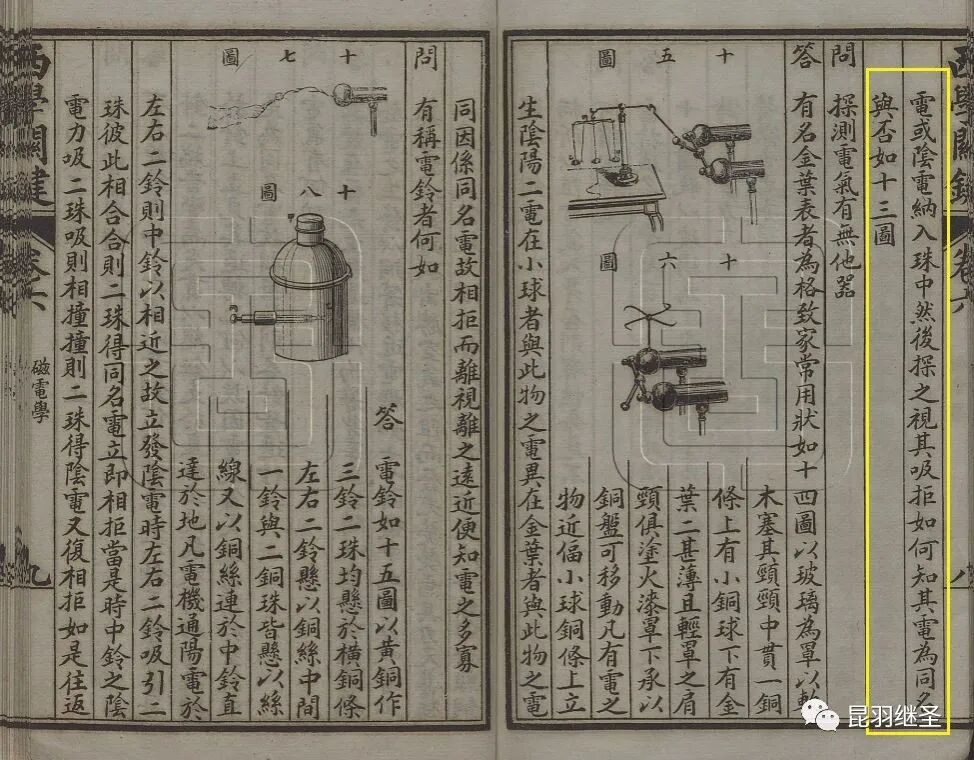 西學關鍵 卷六 八
電或陰電納入珠中然後探之視其吸拒如何知其電為同名
與否如十三圖
問 探測電氣有無他器
答 有名金葉表者為格致家常用狀如十四圖以玻璃為罩以軟
木塞其頸頸中貫一銅
條上有小銅球下有金
葉二甚薄且輕罩之肩
頸俱塗火漆罩下承以
銅盤可移動凡有電之
物近偪小球銅條上立
十五圖
十六圖
生陰陽二電在小球者與此物之電異在金葉者與此物之電
同因係同名電故相拒而離視離之遠近便知電之多寡
問 有稱電鈴者何如
答 電鈴如十五圖以黃銅作
三鈴二珠均懸於橫銅條
左右二鈴懸以銅絲中間
一鈴與二銅珠皆懸以絲
線又以銅絲連於中鈴直
達於地凡電機通陽電於
十七圖
十八圖
左右二鈴則中鈴以相近之故立發陰電時左右二鈴吸引二
珠彼此相合合則二珠得同名電立即相拒當是時中鈴之陰
電力吸二珠吸則相撞撞則二珠得陰電又復相拒如是往返
西學關鍵 卷六 磁電學 九
昆羽继圣